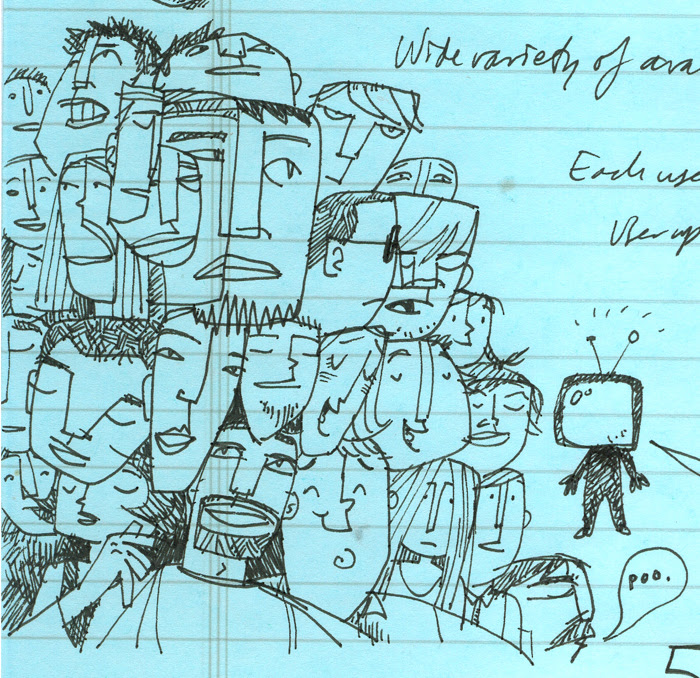 Wide variety of ava
Each use
User up
poo.